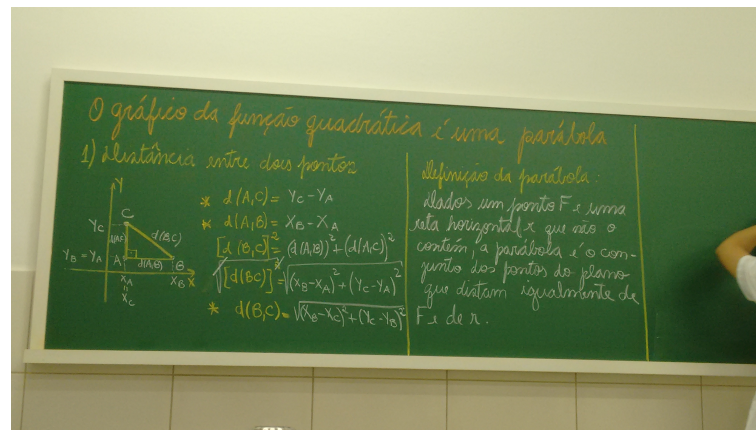 O gráfico da função quadrática é uma parábola
1) Distância entre dois pontos
Y
Y_C
C
d(A,C)
d(B,C)
Y_B = Y_A
A
d(A,B)
B
X_A
X_B
X
X_C
* d(A,C) = Y_C - Y_A
* d(A,B) = X_B - X_A
[d(B,C)]² = (d(A,B))² + (d(A,C))²
√[d(BC)]² = √(X_B - X_A)² + (Y_C - Y_A)²
* d(B,C) = √(X_B - X_C)² + (Y_C - Y_B)²
Definição da parábola:
Dados um ponto F e uma
reta horizontal r que não o
contém, a parábola é o con-
junto dos pontos do plano
que distam igualmente de
F e de r.